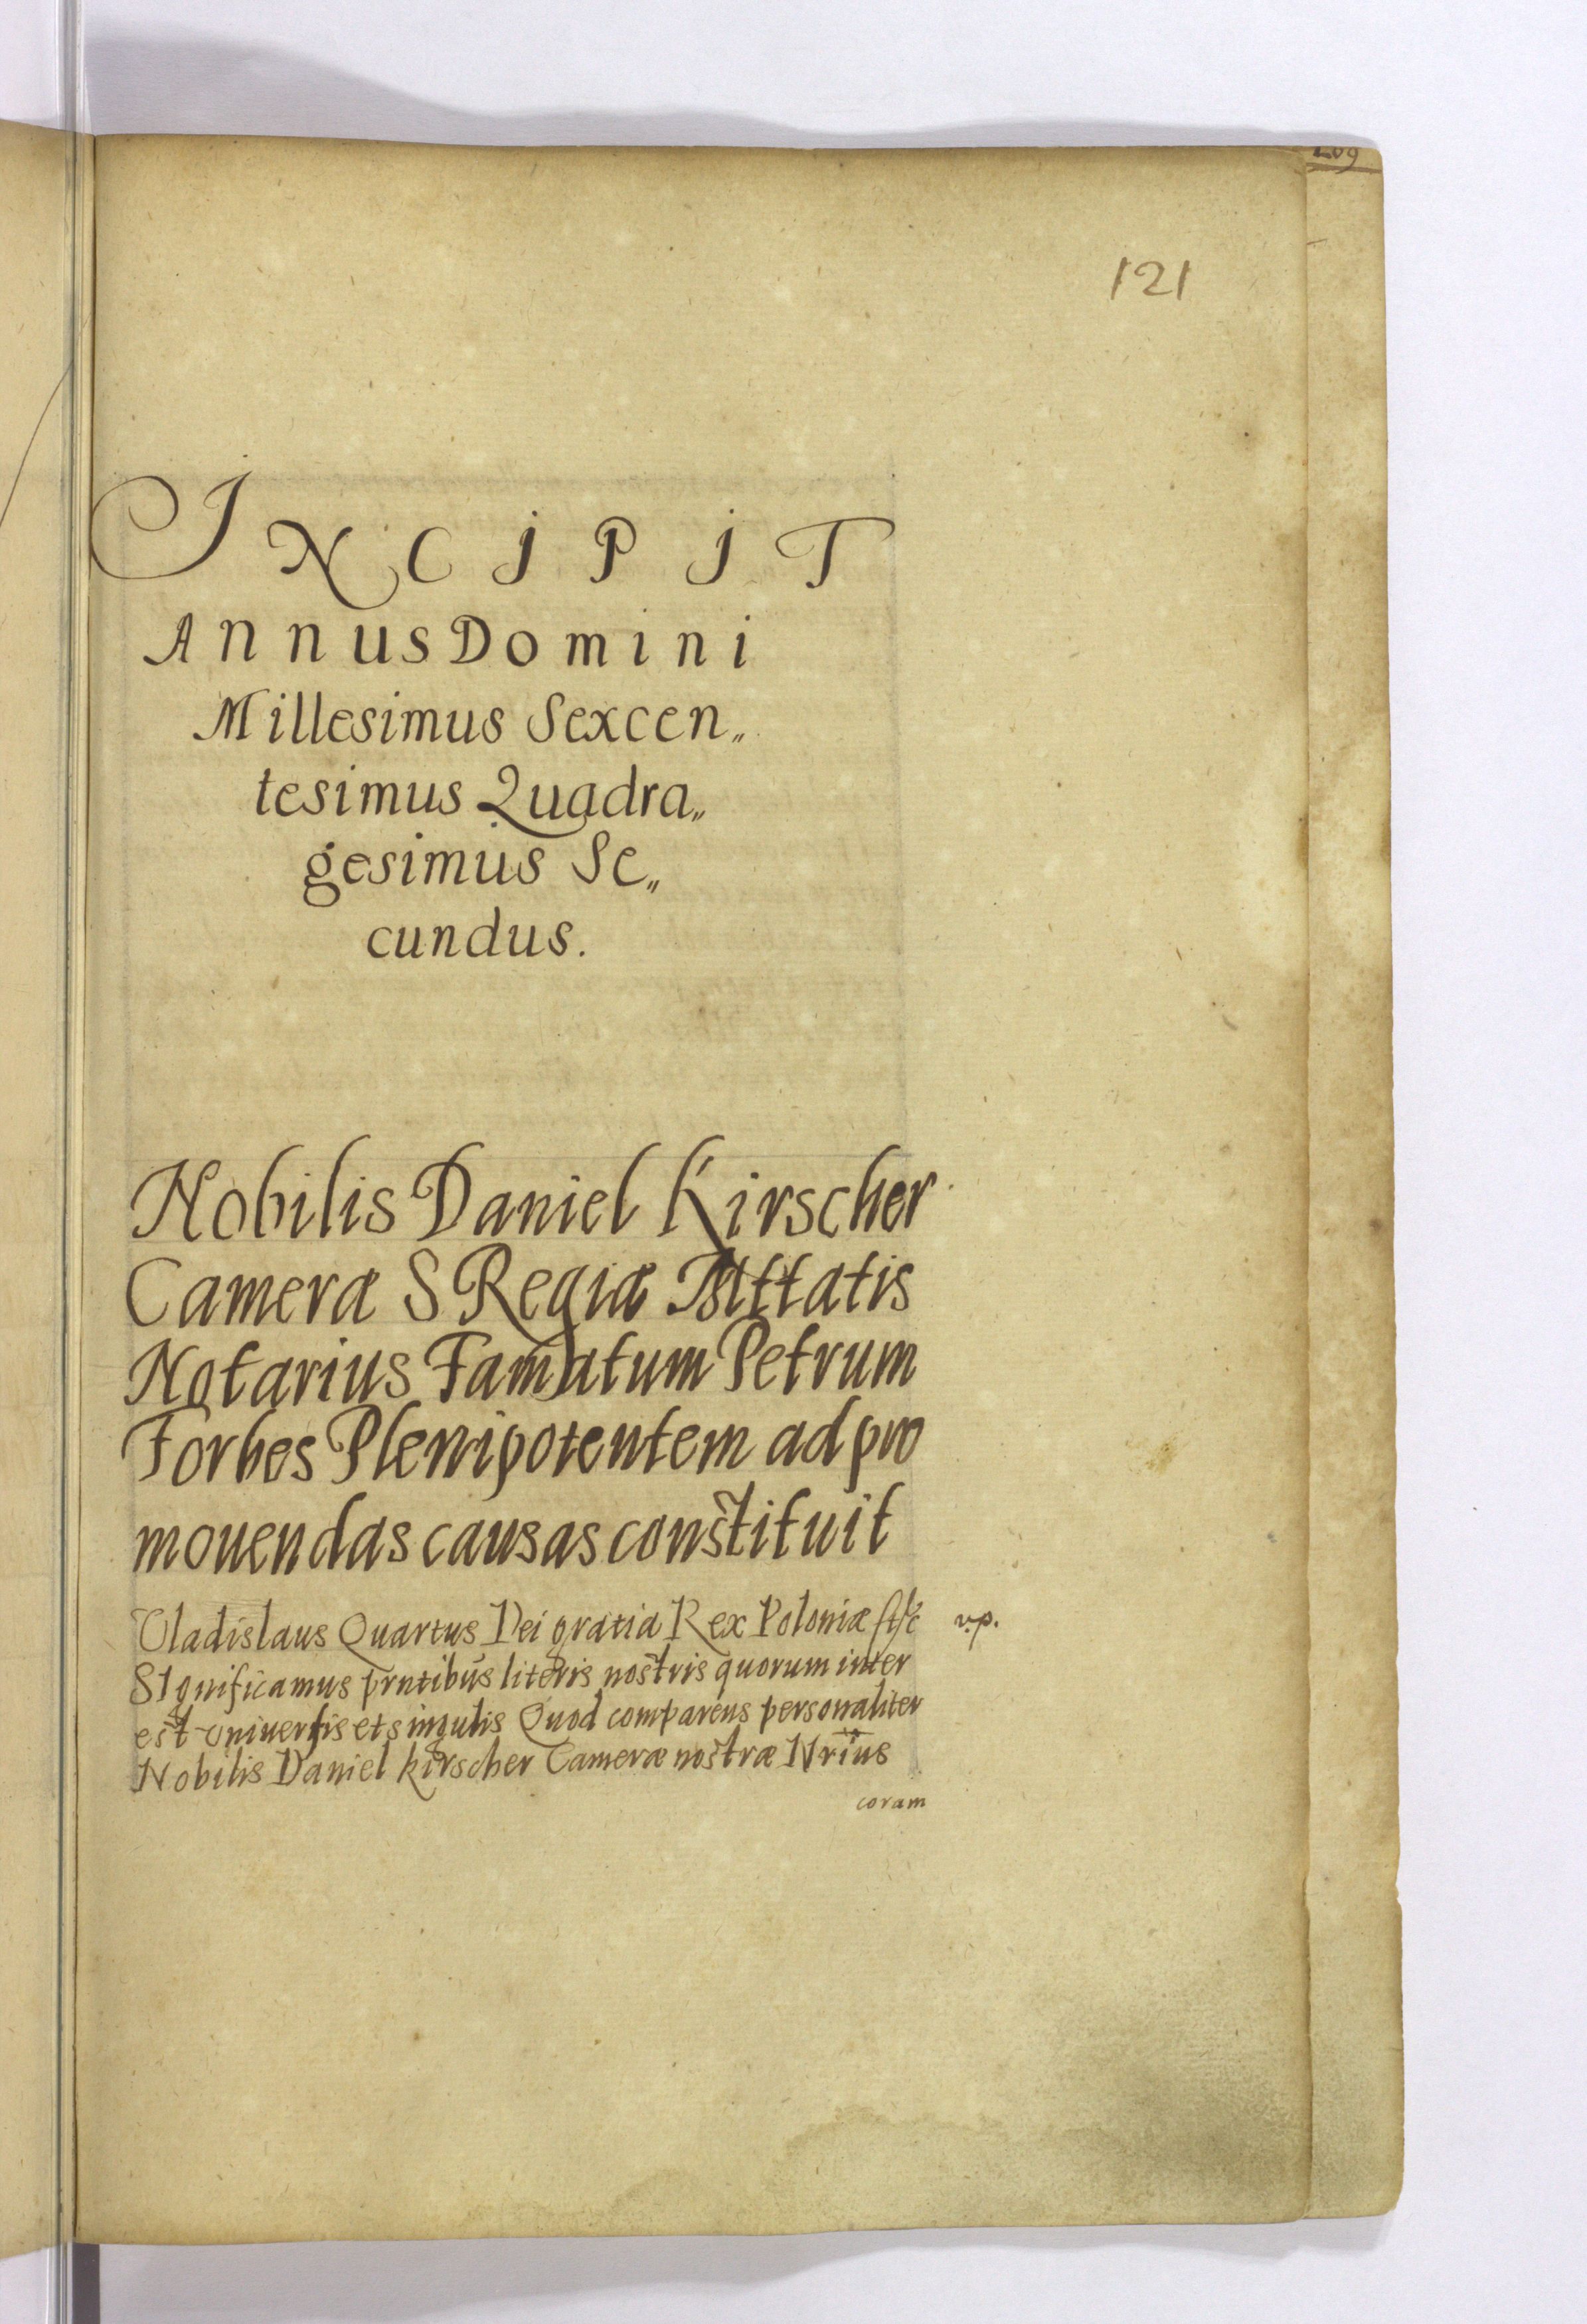 121
INCIPIT
Annus Domini
Millesimus Sexcen„
tesimus Quadra„
gesimus Se„
cundus.
Nobilis Daniel Kirscher
Cameræ S Regiæ Mttatis
Notarius Famatum Petrum
Forbes Plenipotentem ad pro
mouendas causas constituit
Vladislaus Quartus Dei gratia Rex Poloniæ v.p.
SIgnificamus prntibus literis nostris quorum inter
est vniuersis et singulis Quod comparens personaliter
Nobilis Daniel Kirscher Cameræ nostræ Nrius
coram